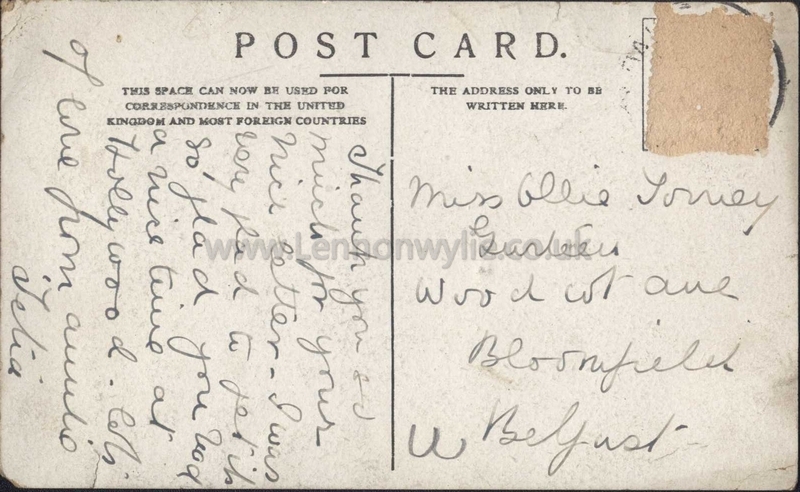 POST CARD.
THIS SPACE CAN NOW BE USED FOR
CORRESPONDENCE IN THE UNITED
KINGDOM AND MOST FOREIGN COUNTRIES
THE ADDRESS ONLY TO BE
WRITTEN HERE.
Thank you so
much for your
nice letter - I was
very glad to get it
so glad you had
a nice time at
Hollywood - lots
of love from auntie
Miss Ollie Torney
Woodcot ave
Bloomfield
Belfast
www.Lennonwylie.co.uk